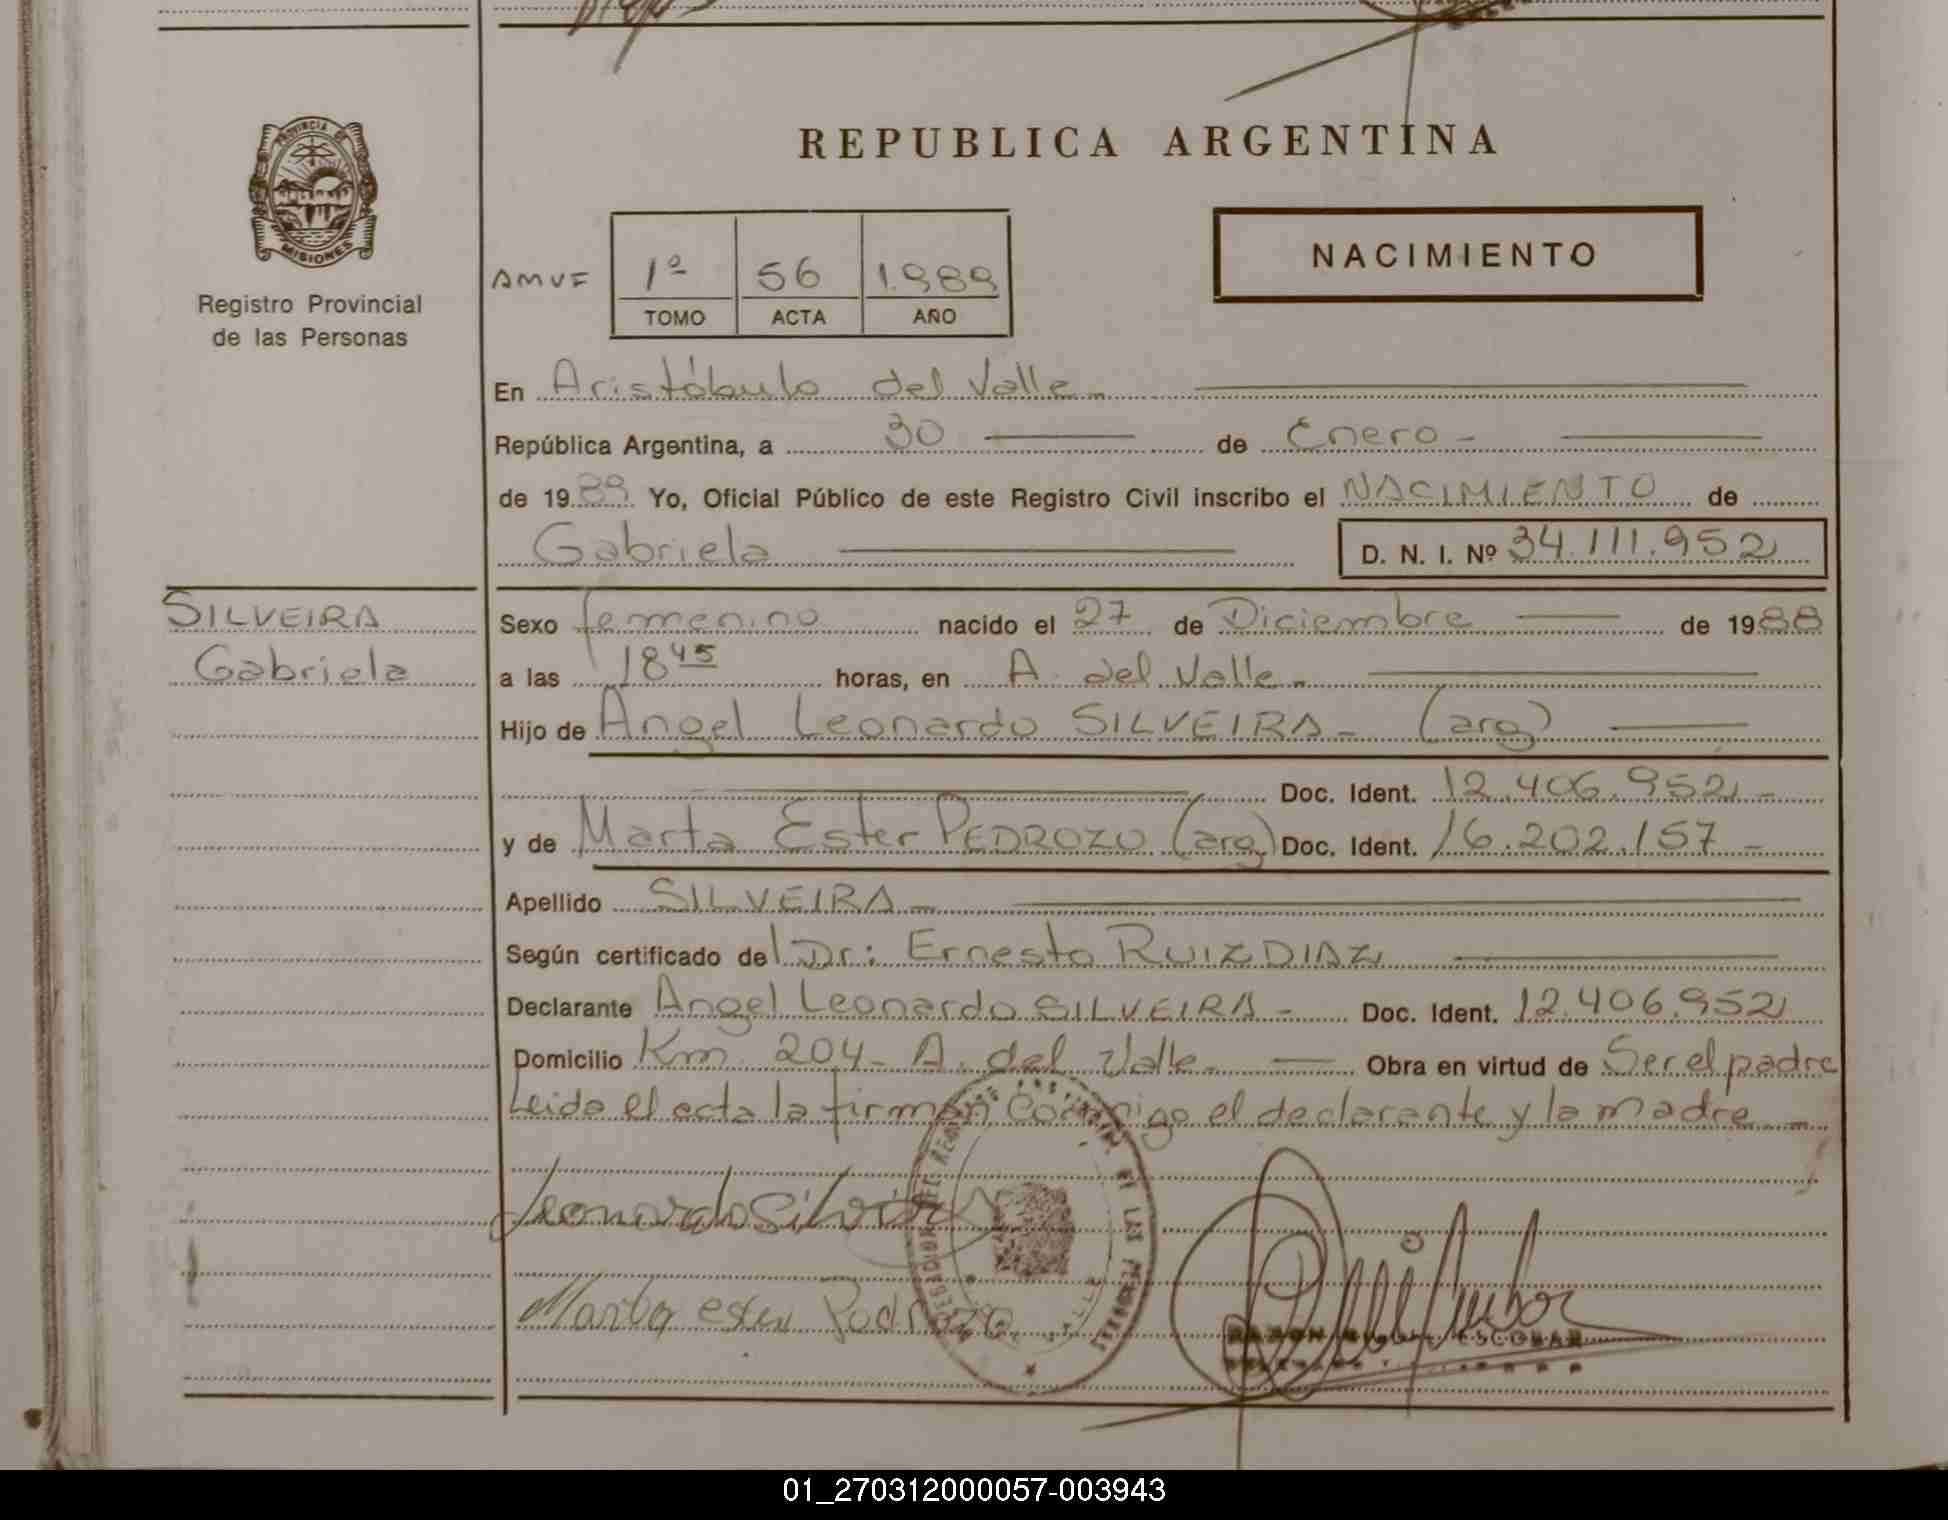 PROVINCIA DE
MISIONES
Registro Provincial
de las Personas
REPUBLICA ARGENTINA
NACIMIENTO
AMVF
1º 56 1.989
TOMO ACTA AÑO
En Aristóbulo del Valle.-
República Argentina, a 30 de Enero -
de 1989 Yo, Oficial Público de este Registro Civil inscribo el NACIMIENTO de
Gabriela D. N. I. Nº 34.111.952
SILVEIRA
Gabriela
Sexo femenino nacido el 27 de Diciembre de 1988
a las 18 45 horas, en A. del Valle.-
Hijo de Angel Leonardo SILVEIRA - (arg)
Doc. Ident. 12.406.952 -
y de Marta Ester PEDROZO (arg) Doc. Ident. 16.202.157 -
Apellido SILVEIRA -
Según certificado del Dr: Ernesto RUIZ DIAZ
Declarante Angel Leonardo SILVEIRA - Doc. Ident. 12.406.952
Domicilio Km. 204 - A. del Valle - Obra en virtud de Ser el padre
Leida el acta la firman conmigo el declarante y la madre.-
Leonardo Silveira
Marta ester Pedrozo
RAMON ESCOBAR
01_270312000057-003943